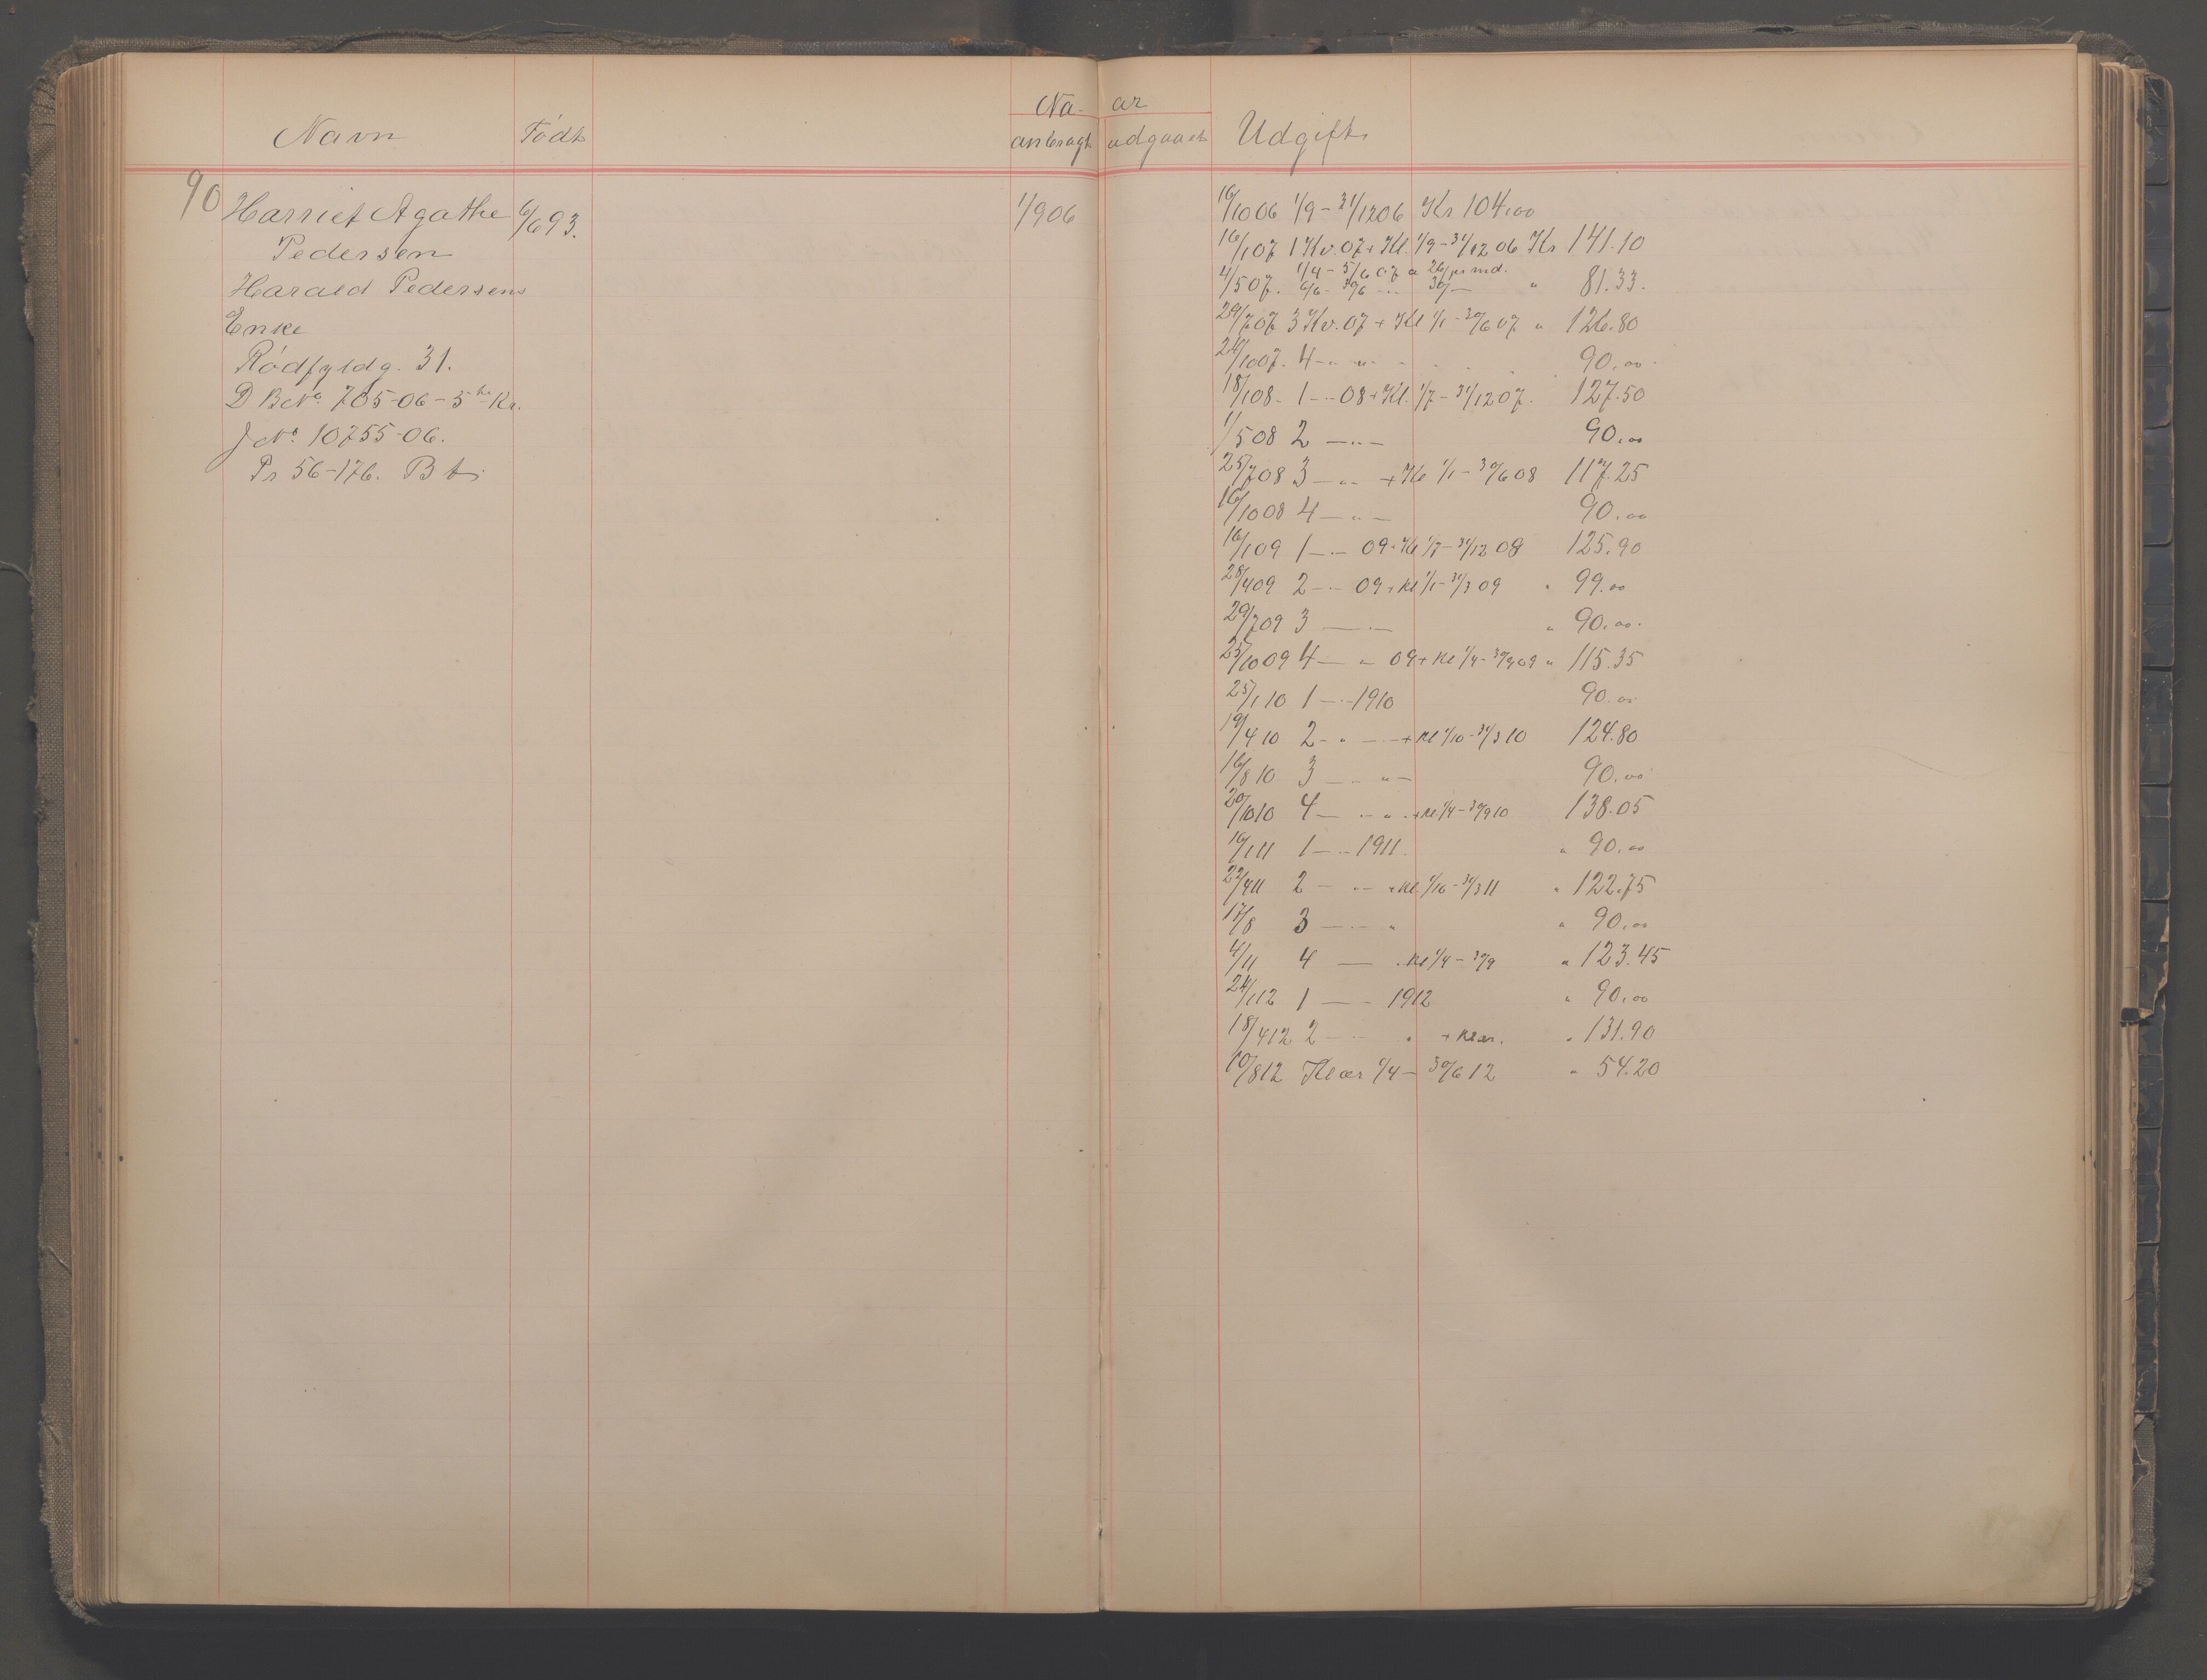 Naar
Navn Födt anbragt udgaaet Udgift
90 Harriet Agathe 6/6 93. 1/9 06
Pedersen
Harald Pedersens
Enke
Rödfyldg. 31.
D B No. 705-06-5te Kr.
J No. 10755-06.
Pr 56-176. B
16/10 06 1/9 - 31/12 06 Kr 104,00
16/1 07 1 Kv. 07 + Kl. 1/9 - 31/12 06 Kr 141.10
1/4 - 5/6 07 a 26/ pr md.
4/5 07. 6/6 - 30/6 - " - 30/ - " 81.33.
29/7 07 3 Kv. 07 + Kl 1/1 - 30/6 07 " 126.80
24/10 07. 4 - " - " - 90,00
18/1 08 - 1 - " - 08 + Kl. 1/7 - 31/12 07. 127.50
1/5 08 2 - " - 90,00
25/7 08 3 - " - + Kl 1/1 - 30/6 08 117.25
16/10 08 4 - " - 90,00
16/1 09 1 - " - 09 + Kl 1/7 - 31/12 08 125.90
28/4 09 2 - " - 09 + Kl 1/1 - 31/3 09 " 99.00
29/7 09 3 - " - " 90,00.
25/10 09 4 - " 09 + Kl 1/4 - 30/9 09 " 115.35
25/1 10 1 - " - 1910 90.00
19/4 10 2 - " - + Kl 1/10 - 31/3 10 124.80
16/8 10 3 - " " - 90,00
20/10 10 4 - " - " - + Kl 1/4 - 30/9 10 138.05
16/1 11 1 - " - 1911. " 90,00
22/4 11 2 - " - + Kl. 1/10 - 31/3 11 " 122.75
17/8 3 - " - " " 90,00
4/11 4 - + Kl 1/4 - 30/9 " 123.45
24/1 12 1 - " - 1912 " 90,00
18/4 12 2 - " - " + Klær. " 131.90
10/8 12 Klær 1/4 - 30/6 12 " 54.20